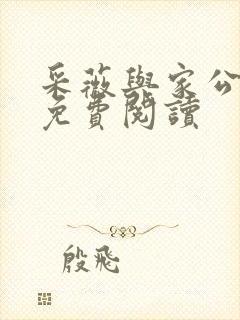 采薇與家公
免費閱讀
殷飛